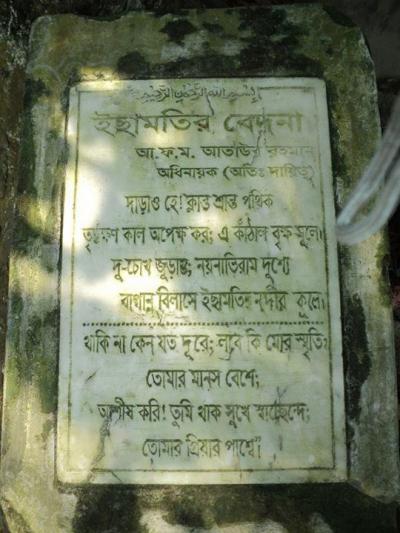 بسم الله الرحمن الرحيم
ইছামতির বেদনা
আ.ফ.ম. আতাউর রহমান
অধিনায়ক (অতিঃ দায়িত্ব)
দাড়াও হে! ক্লান্ত শ্রান্ত পথিক
কাল অপেক্ষ কর; এ কাঁঠাল বৃক্ষ মূলে।
দু-চোখ জুড়াও; নয়নাভিরাম দৃশ্যে
বিলাসে ইছামতির নদীর কূলে।
থাকি না কেন যত দূরে; লবে কি মোর স্মৃতি?
তোমার মানস বেশে;
আশীষ করি! তুমি থাক সুখে স্বাচ্ছন্দে;
তোমার প্রিয়ার পার্শ্বে।